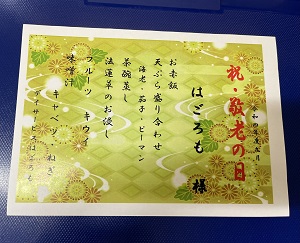 祝・敬老の日
はごろも 様
お赤飯
天ぷら盛り合わせ
海老・茄子・ピーマン
茶碗蒸し
法蓮草のお浸し
フルーツ キウイ
味噌汁
キャベツ ねぎ
デイサービスはごろも